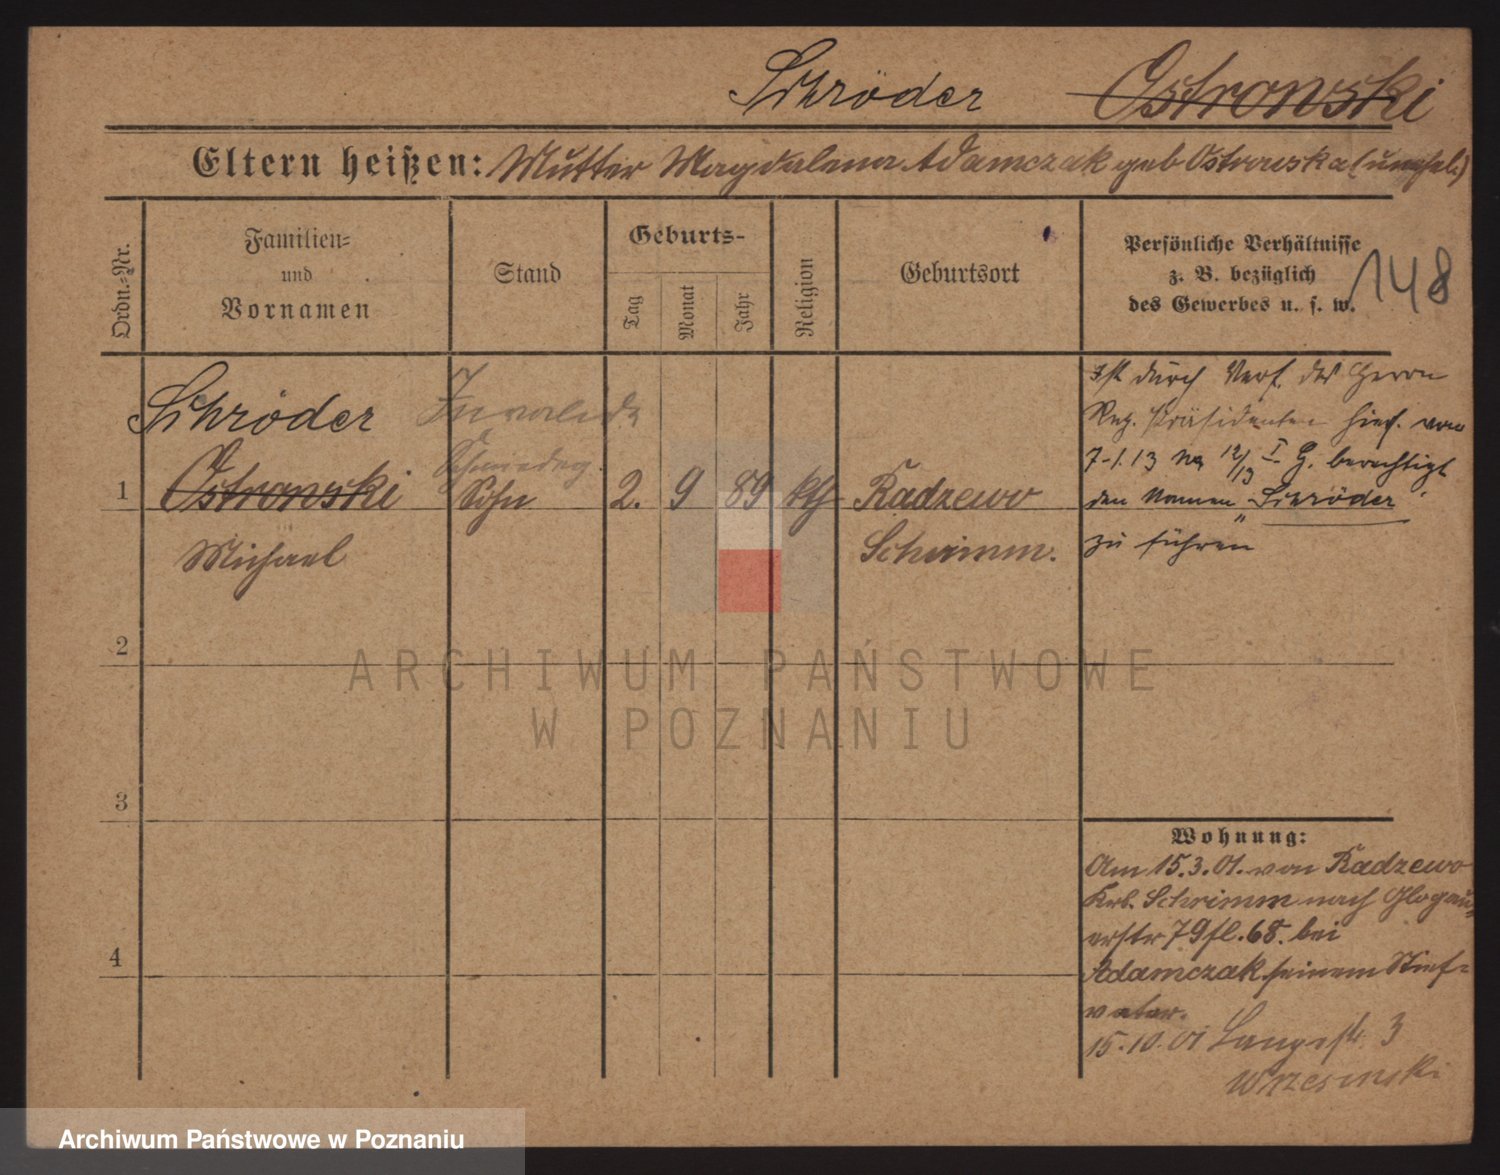 Schröder Ostrowski
Eltern heißen: Mutter Magdalena Adamczak geb Ostrowska (unehel.)
Ordn.-Nr.
Familien-
und
Vornamen
Stand
Geburts-
Tag
Monat
Jahr
Religion
Geburtsort
Persönliche Verhältnisse
z. B. bezüglich
des Gewerbes u. s. w.
148
Schröder
Invalide
Ostrowski
Schmiedeg.
1
Sohn
2. 9 89 kth
Radzewo
Michael
Schrimm.
Ist durch Verf. des Herrn
Reg. Präsidenten hier. vom
7-1.13 No 12/13 I G. berechtigt
den Namen "Schröder"
zu führen
2
3
4
Wohnung:
Am 15.3.01. von Radzewo
Krb. Schrimm nach Glogau-
erstr 79 fl. 68. bei
Adamczak seinem Stief-
vater.
15.10.01 Langestr. 3
Wrzesinski
ARCHIWUM PAŃSTWOWE
W POZNANIU
Archiwum Państwowe w Poznaniu